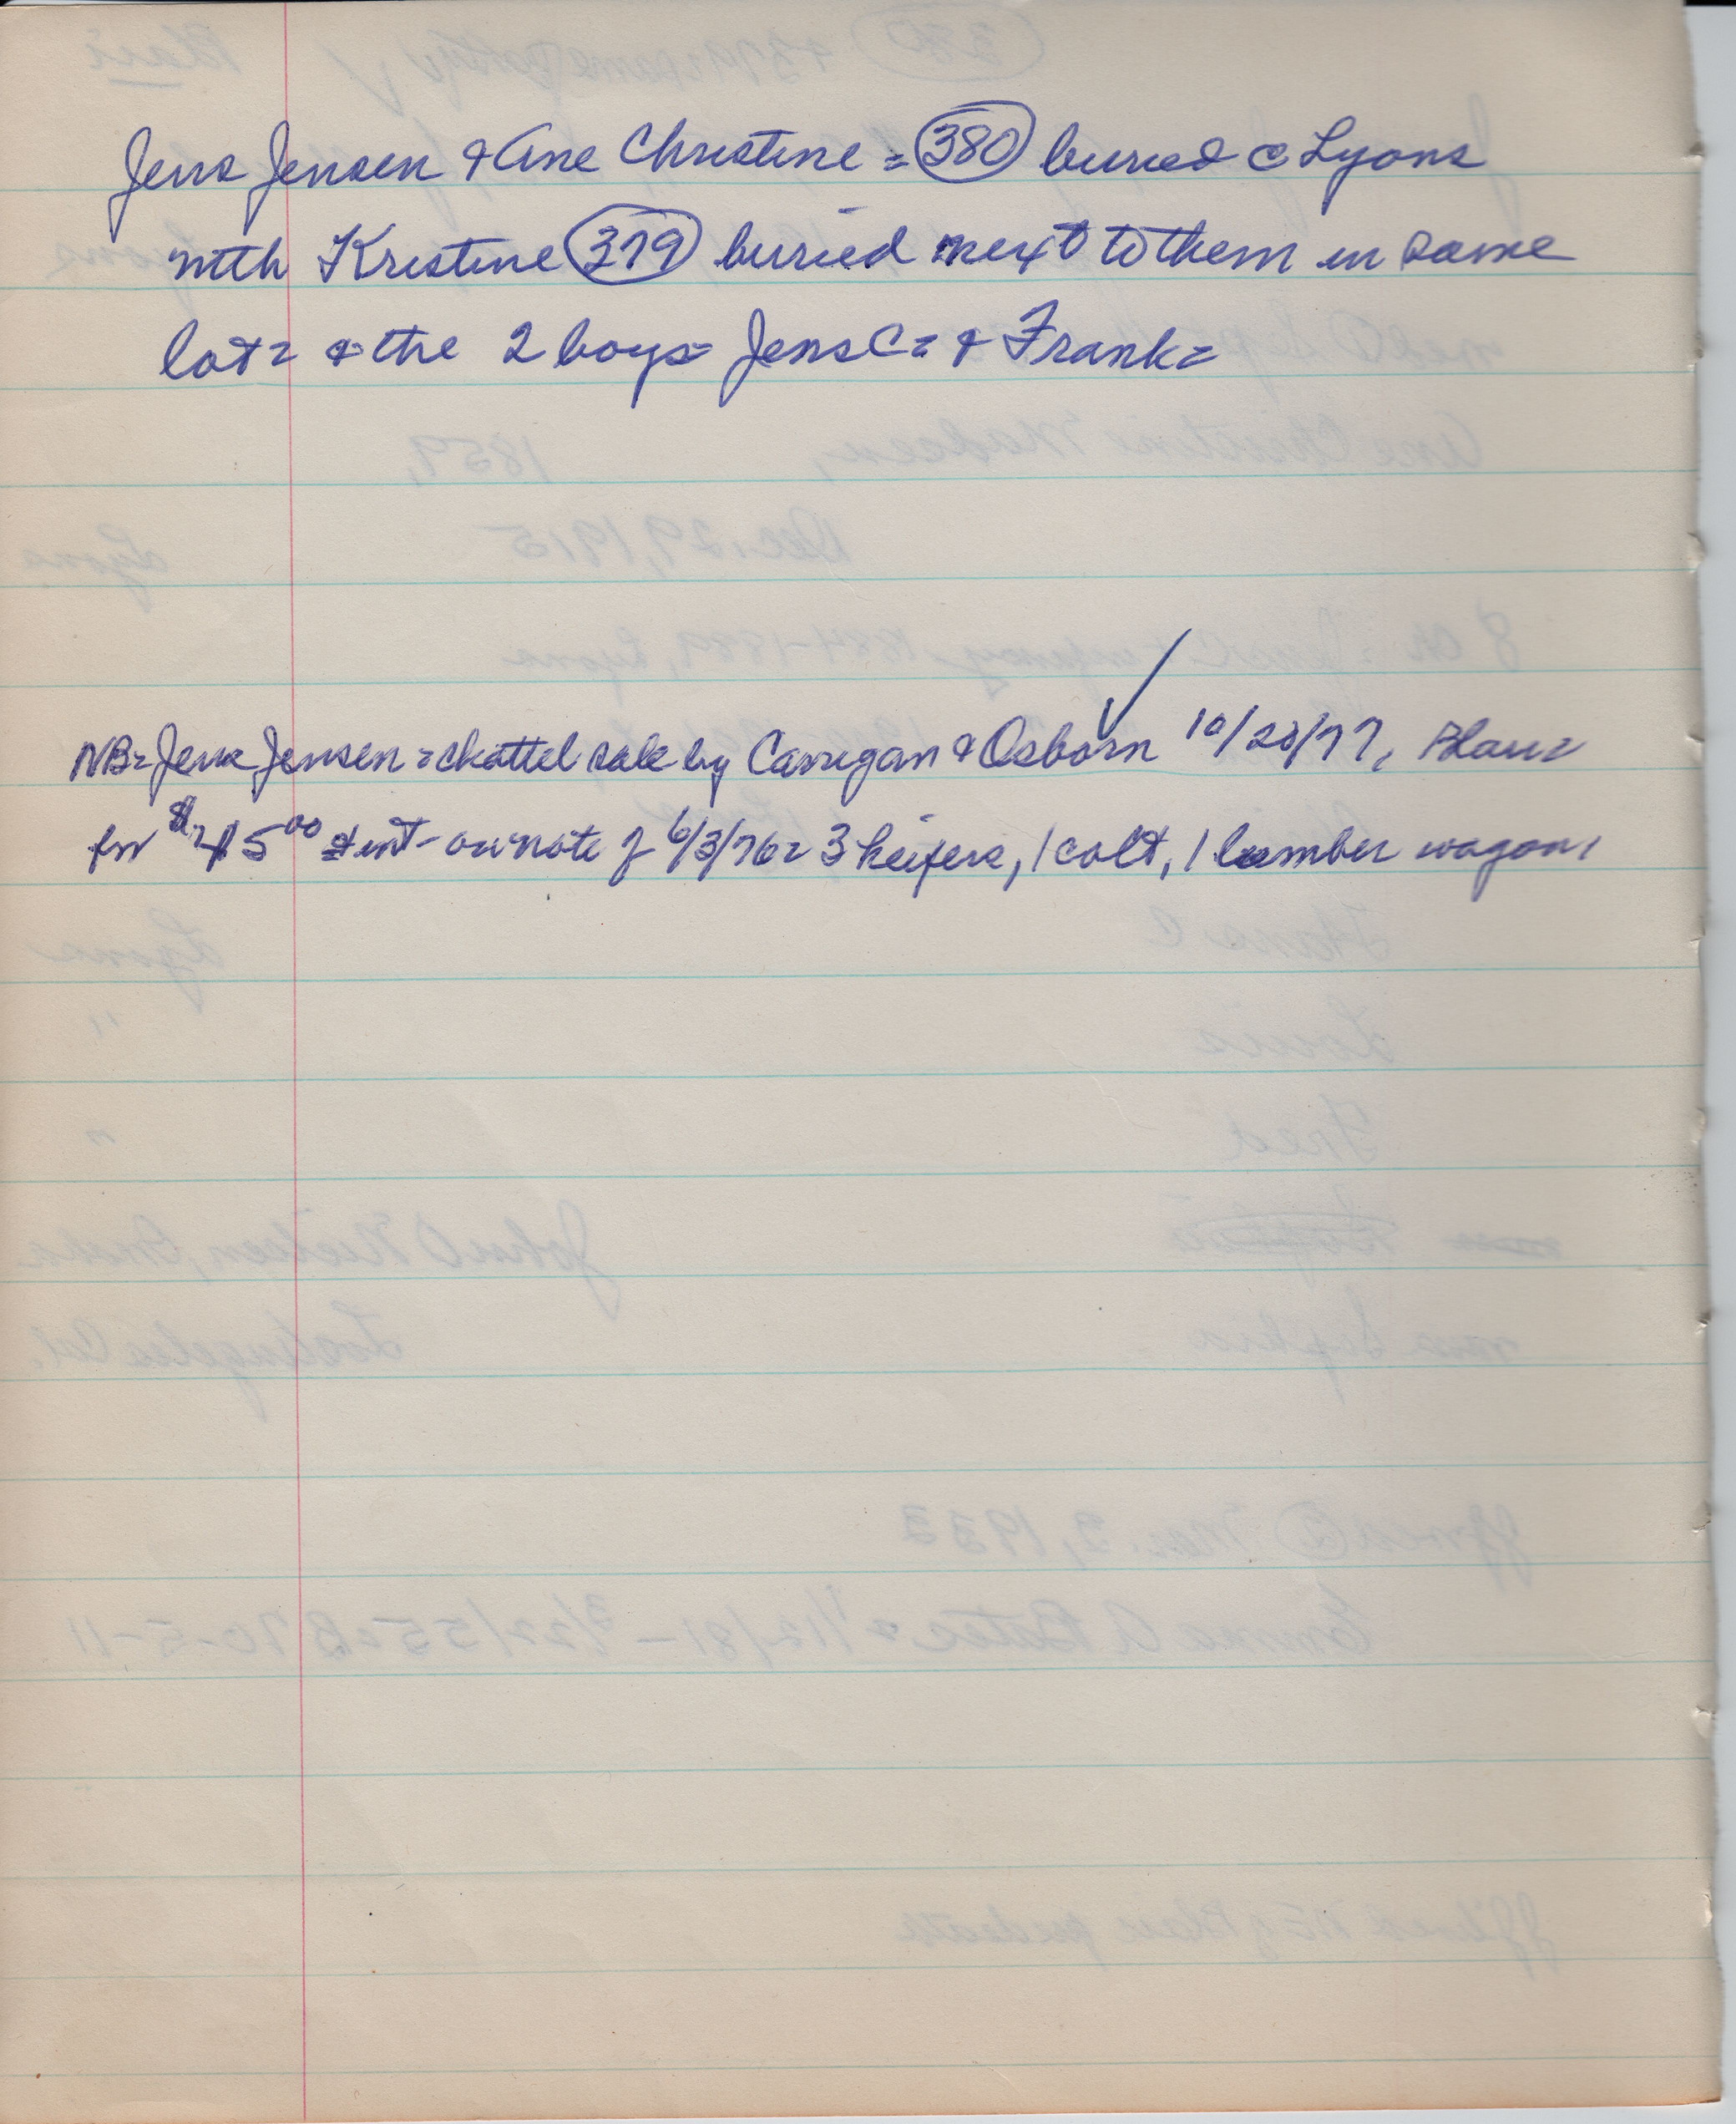 Jens Jensen & Ane Christine = 380 buried @ Lyons
with Kristine 379 buried next to them in same
lot = & the 2 boys = Jens C = & Frank =
NB = Jens Jensen = chattel sale by Carrigan & Osborn 10/20/77, Blair =
for $45 00 & int on note of 6/3/76 = 3 heifers, 1 colt, 1 lumber wagon,